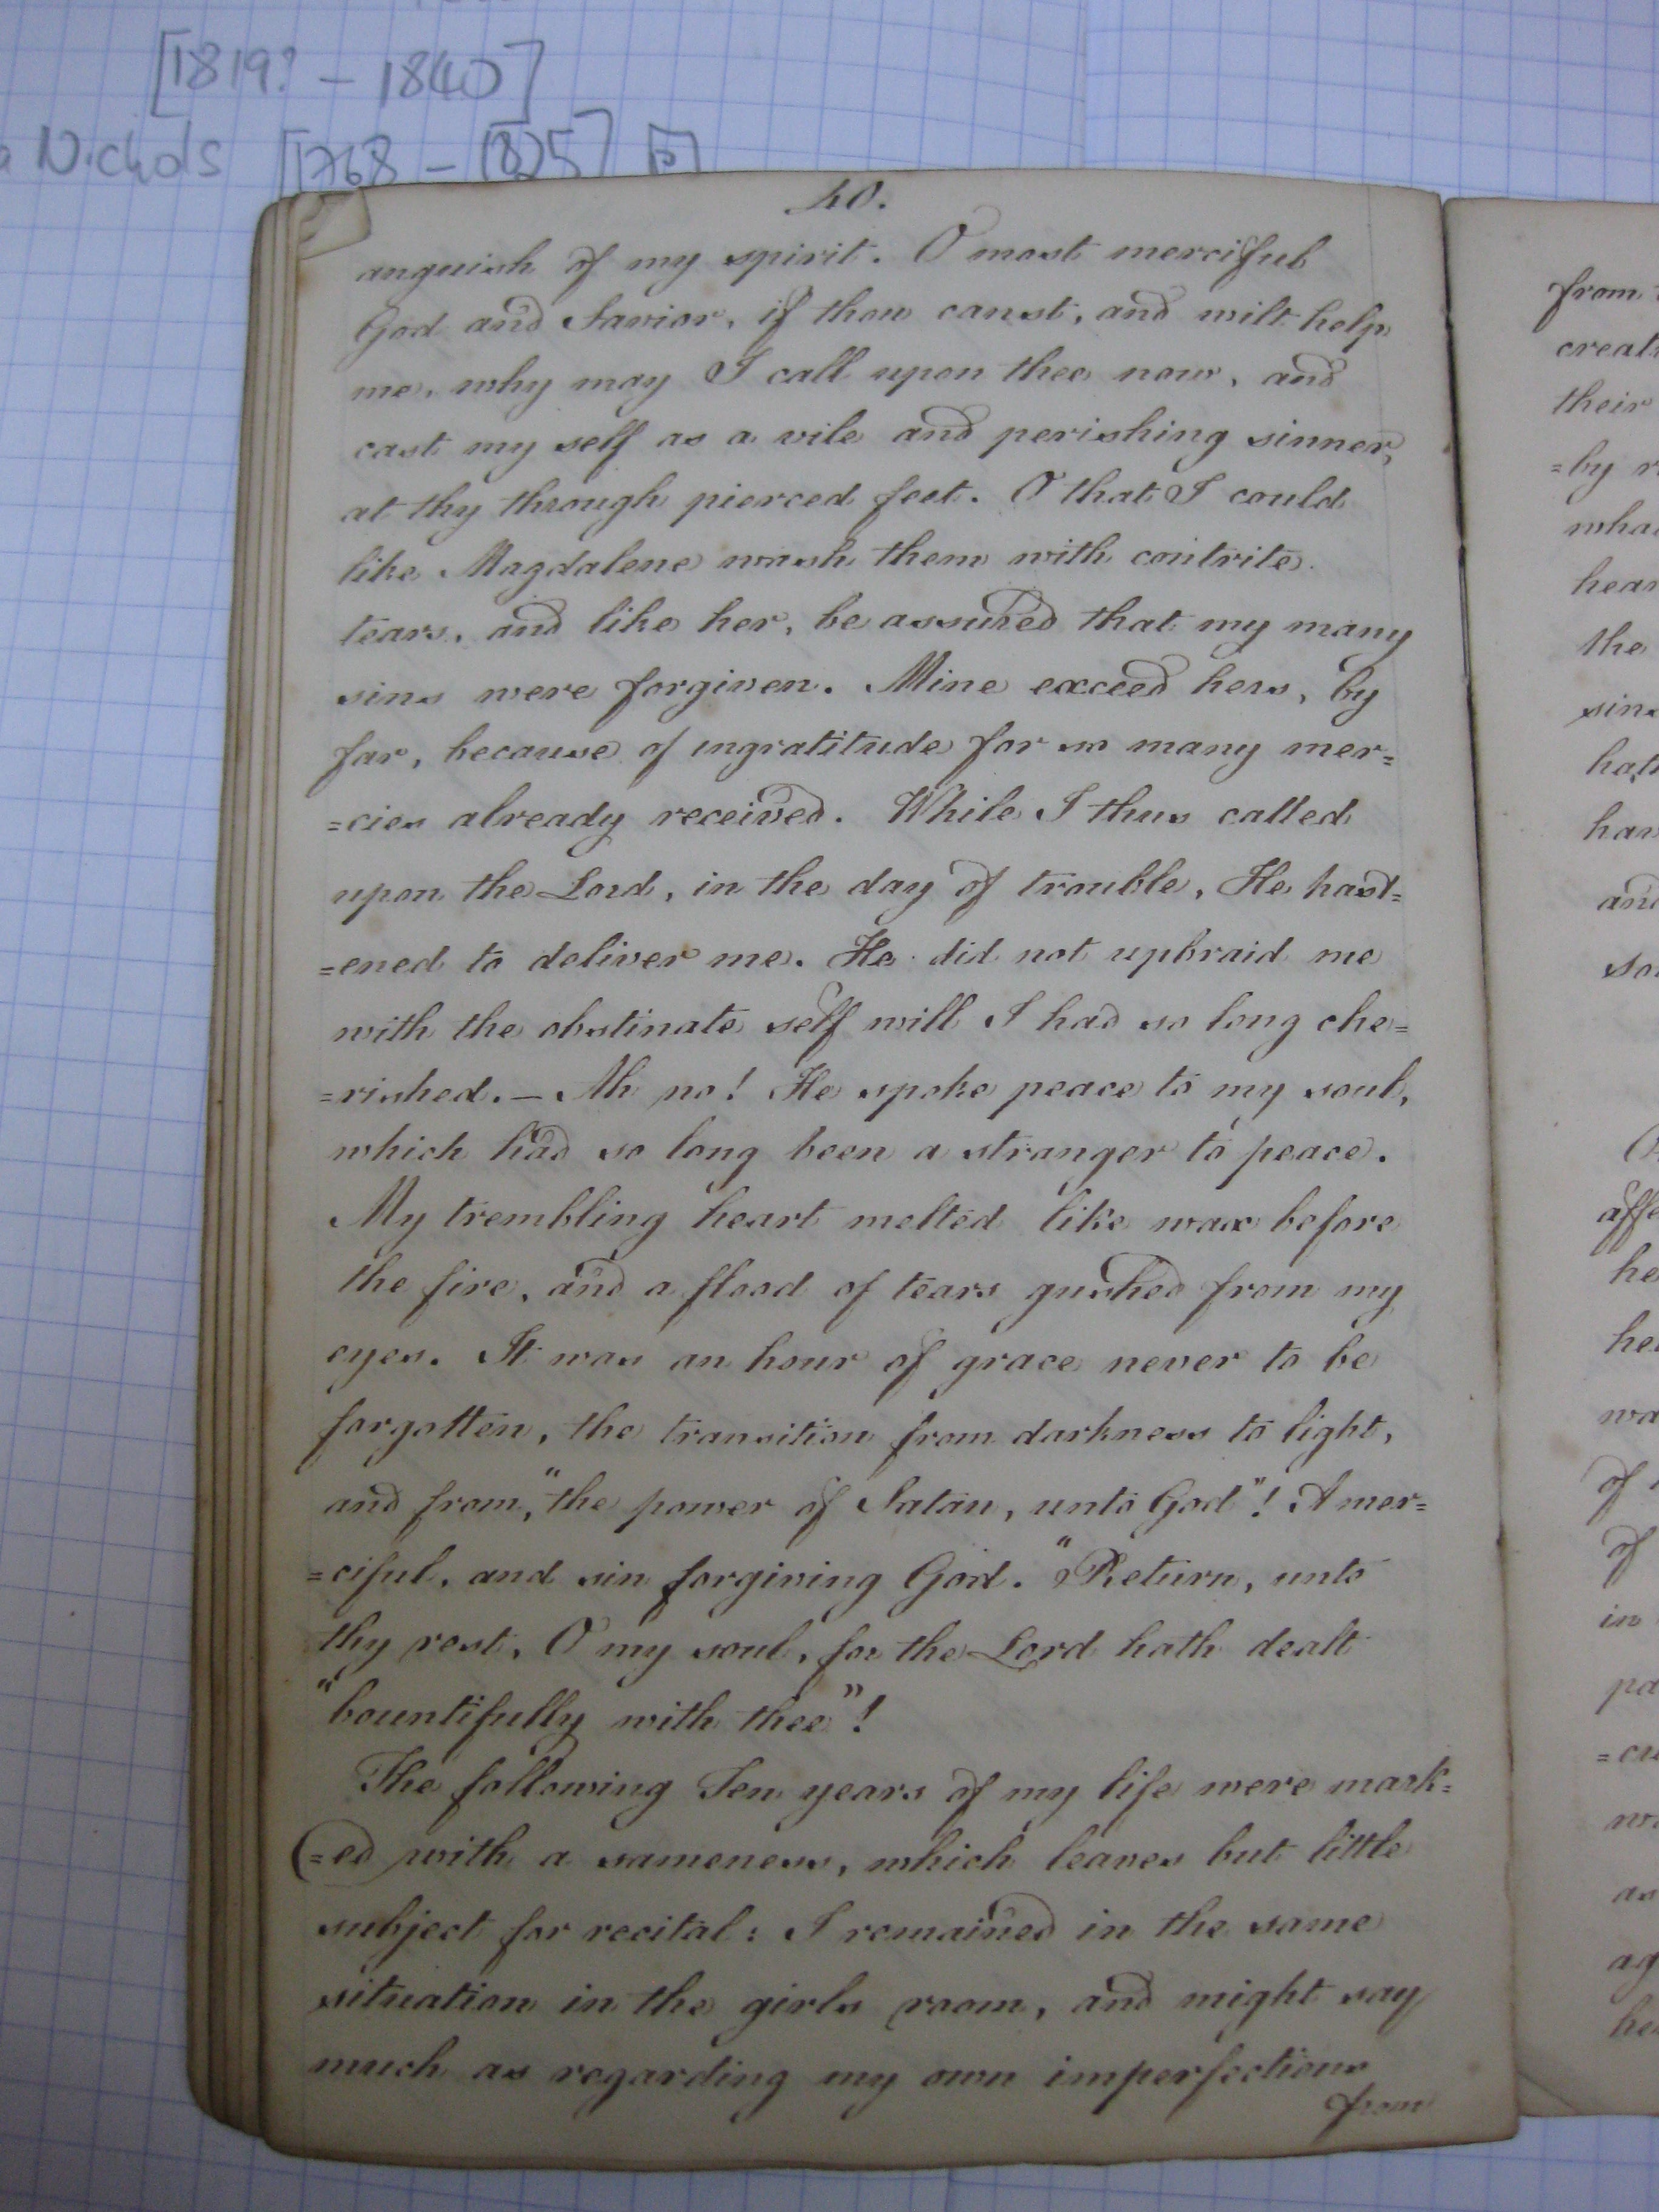 [1819? - 1840]
Nichols [1768 - 1825]
40.
anguish of my spirit. O most merciful
God and Savior, if thou canst, and wilt help
me, why may I call upon thee now, and
cast my self as a vile and perishing sinner,
at thy through pierced feet. O that I could
like Magdalene wash them with contrite
tears, and like her, be assured that my many
sins were forgiven. Mine exceed hers, by
far, because of ingratitude for so many mer=
=cies already received. While I thus called
upon the Lord, in the day of trouble, He hast=
=ened to deliver me. He did not upbraid me
with the obstinate self will I had so long che=
=rished. – Ah no! He spoke peace to my soul,
which had so long been a stranger to peace.
My trembling heart melted like wax before
the fire, and a flood of tears gushed from my
eyes. It was an hour of grace never to be
forgotten, the transition from darkness to light,
and from, "the power of Satan, unto God"! A mer=
=ciful, and sin forgiving God. "Return, unto
thy rest, O my soul, for the Lord hath dealt
"bountifully with thee"!
The following Ten years of my life were mark=
=ed with a sameness, which leaves but little
subject for recital: I remained in the same
situation in the girls room, and might say
much as regarding my own imperfections
from
from
creat
their
=by
wha
hear
the
sins
hath
han
and
so
affe
he
he
wa
of
of
in
pa
=cu
as
ag
he